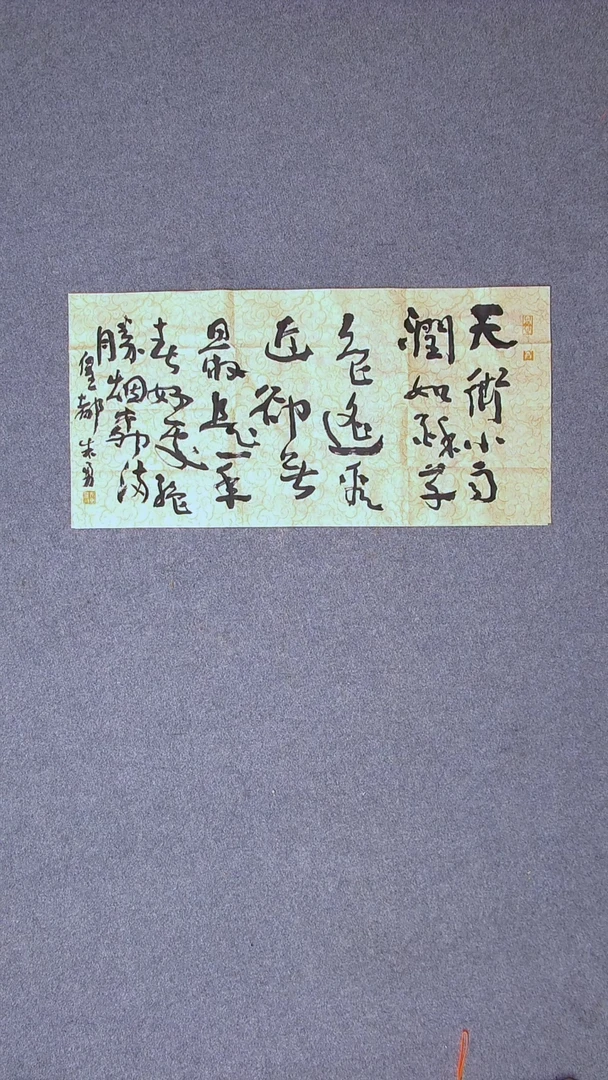 天街小雨
潤如酥草
色遙看
近卻無
最是一年
春好處絕
勝烟柳滿
皇都 朱勇